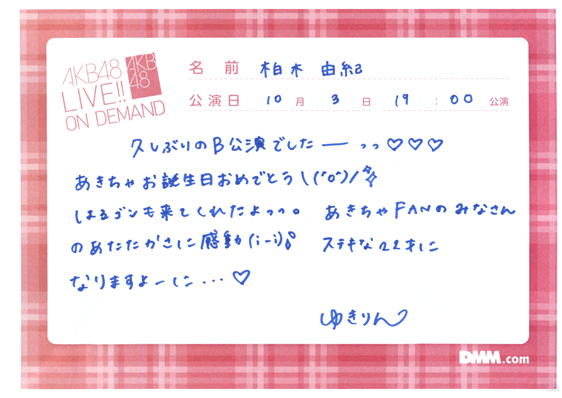 AKB48
LIVE!!
ON DEMAND
AKB
48
名前 柏木 由紀
公演日 10月 3日 19:00 公演
久しぶりのB公演でしたーっっ♡♡♡
あきちゃお誕生日おめでとう\(^o^)/
はるゴンも来てくれたよっっ。 あきちゃFANのみなさん
のあたたかさに感動(i-i) ステキな22才に
なりますよーに...♡
ゆきりん
DMM.com